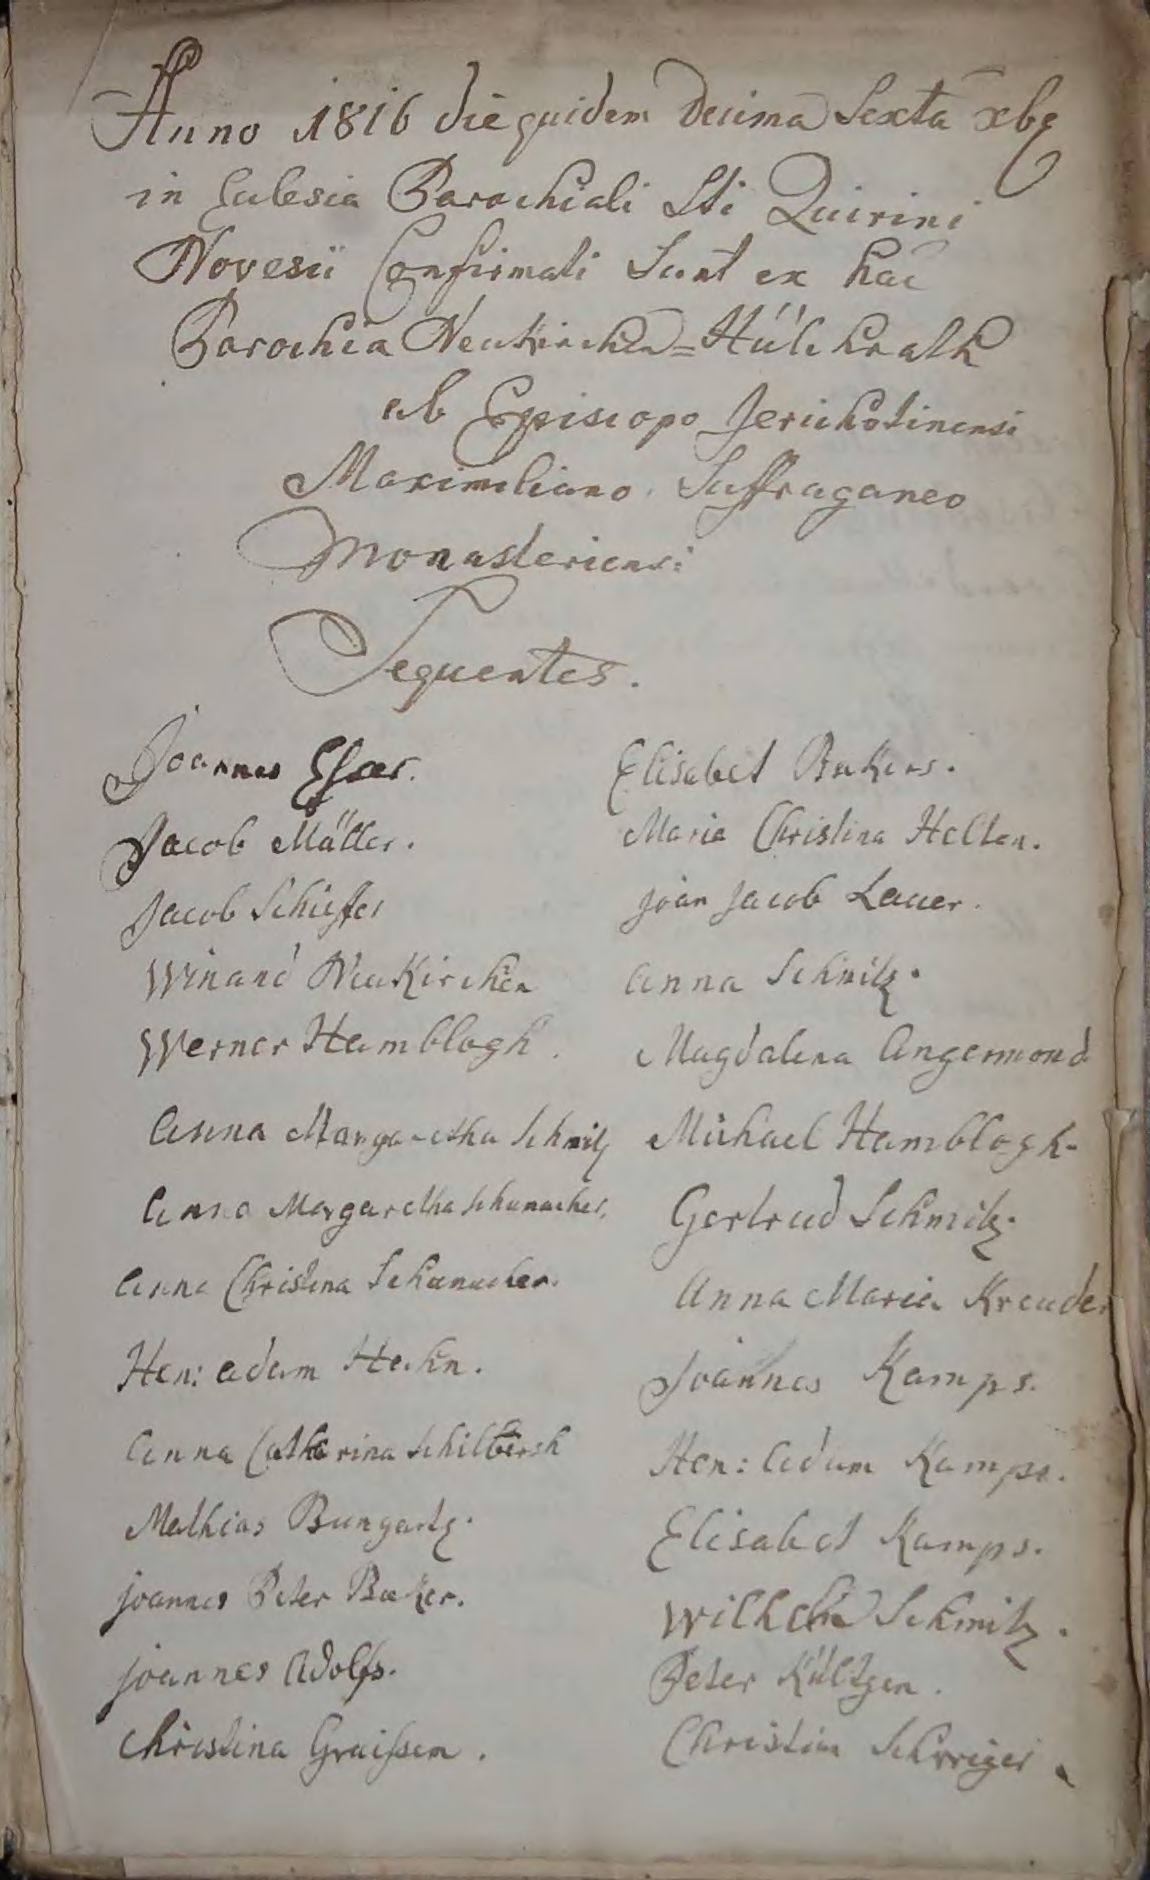 Anno 1816 die quidem Decima Sexta xbr
in Eclesia Parochiali Sti Quirini
Novesii Confirmati Sunt ex hac
Parochia Neukirchen=Hülchrath
ab Episcopo Jerichotinensi
Maximiliano Suffraganeo
Monasteriensi
Sequentes.
Joannes Esser.
Jacob Müller.
Jacob Schieffer
Winand Neukirchen
Werner Hamblogh.
Anna Margaretha Schmitz
Anna Margaretha Schumacher,
Anna Christina Schumacher.
Hen: adam Hahn.
Anna Catharina
Mathias Bungartz.
joannes Peter Beeker.
joannes Adolfs.
Christina Graissen.
Elisabet Bekers.
Maria Christina Helten.
joan jacob Lauer.
Anna Schmitz.
Magdalena Angermond
Michael Hamblogh.
Gertrud Schmitz.
Anna Maria Kreuder
Joannes Kamps.
Hen: Adam Kamps.
Elisabet Kamps.
Wilhelm Schmitz.
Peter Kültzen.
Christina